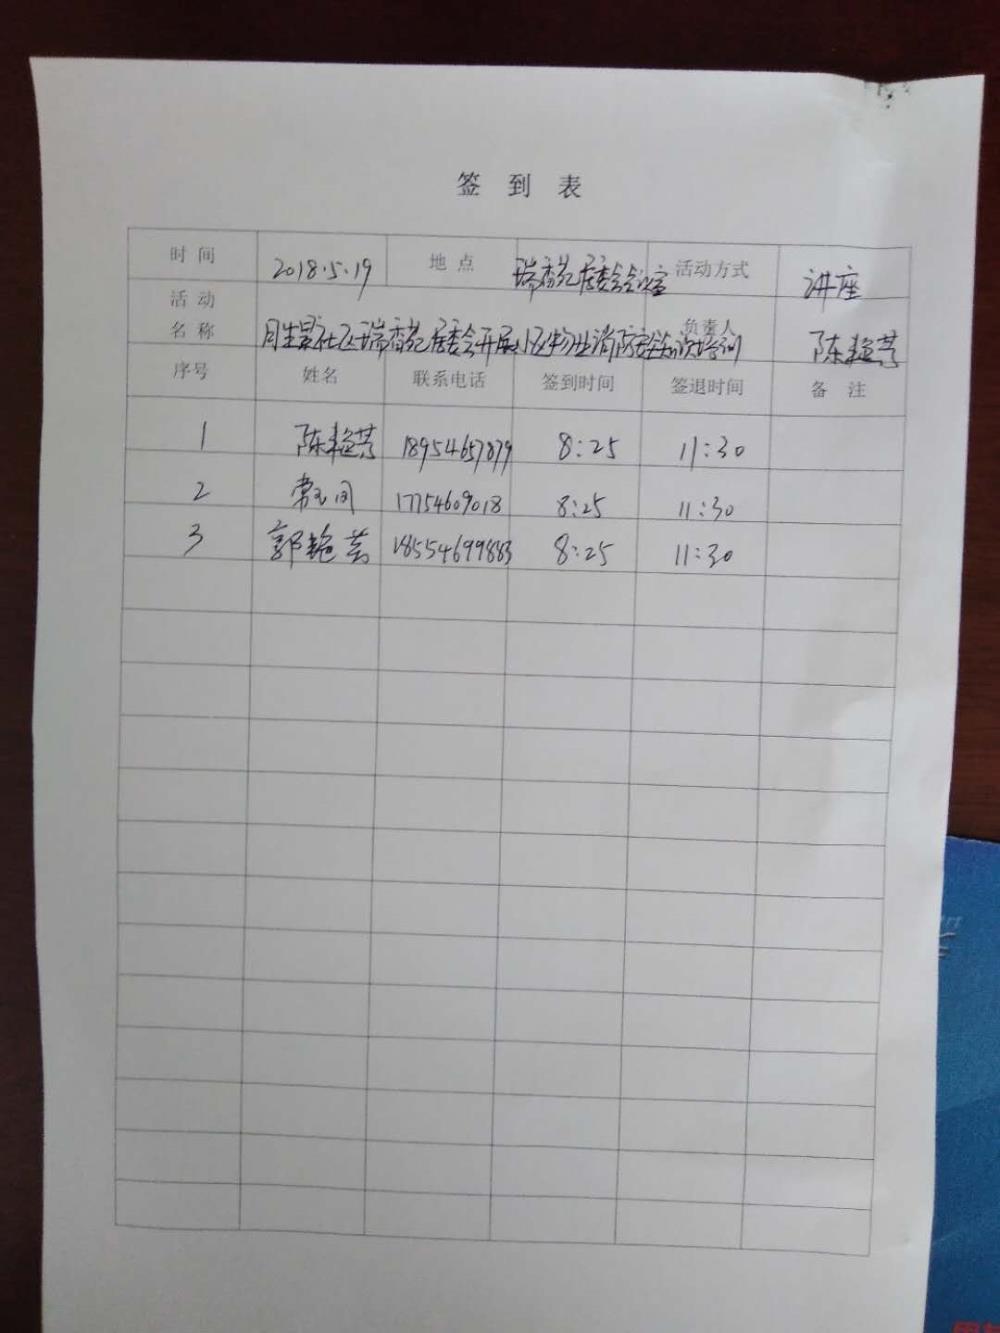 签 到 表
时 间 2018.5.19 地 点 瑞香苑居委会会议室 活动方式 讲座
活 动
名 称 社区瑞香苑居委会开展小区物业消防安全知识培训 负责人 陈艳芳
序号 姓名 联系电话 签到时间 签退时间 备 注
1 陈艳芳 18954657879 8:25 11:30
2 17754609018 8:25 11:30
3 郭艳芳 18554699883 8:25 11:30